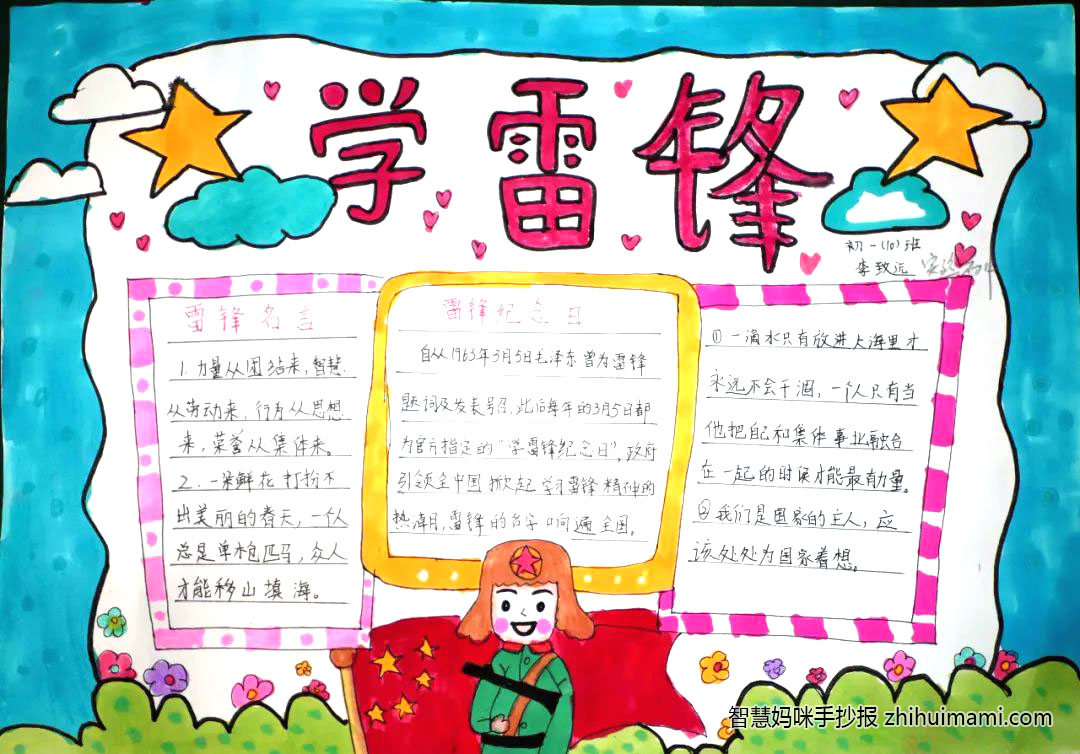 学雷锋
初一(10)班
李致远
雷锋名言
1.力量从团结来,智慧
从劳动来,行为从思想
来,荣誉从集体来。
2.一朵鲜花打扮不
出美丽的春天,一个人
总是单枪匹马,众人
才能移山填海。
雷锋纪念日
自从1963年3月5日毛泽东曾为雷锋
题词及发表号召,此后每年的3月5日都
为官方指定的“学雷锋纪念日”,政府
引领全中国掀起学习雷锋精神的
热潮,雷锋的名字响遍全国。
①一滴水只有放进大海里才
永远不会干涸,一个人只有当
他把自己和集体事业融合
在一起的时候才能最有力量。
②我们是国家的主人,应
该处处为国家着想。
智慧妈咪手抄报 zhihuimami.com